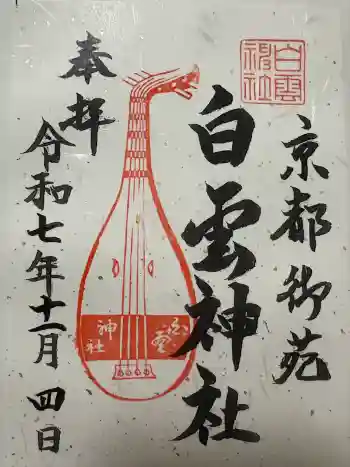 京都御苑
白雲神社
白雲神社
奉拝
白雲
神社
令和七年十一月四日